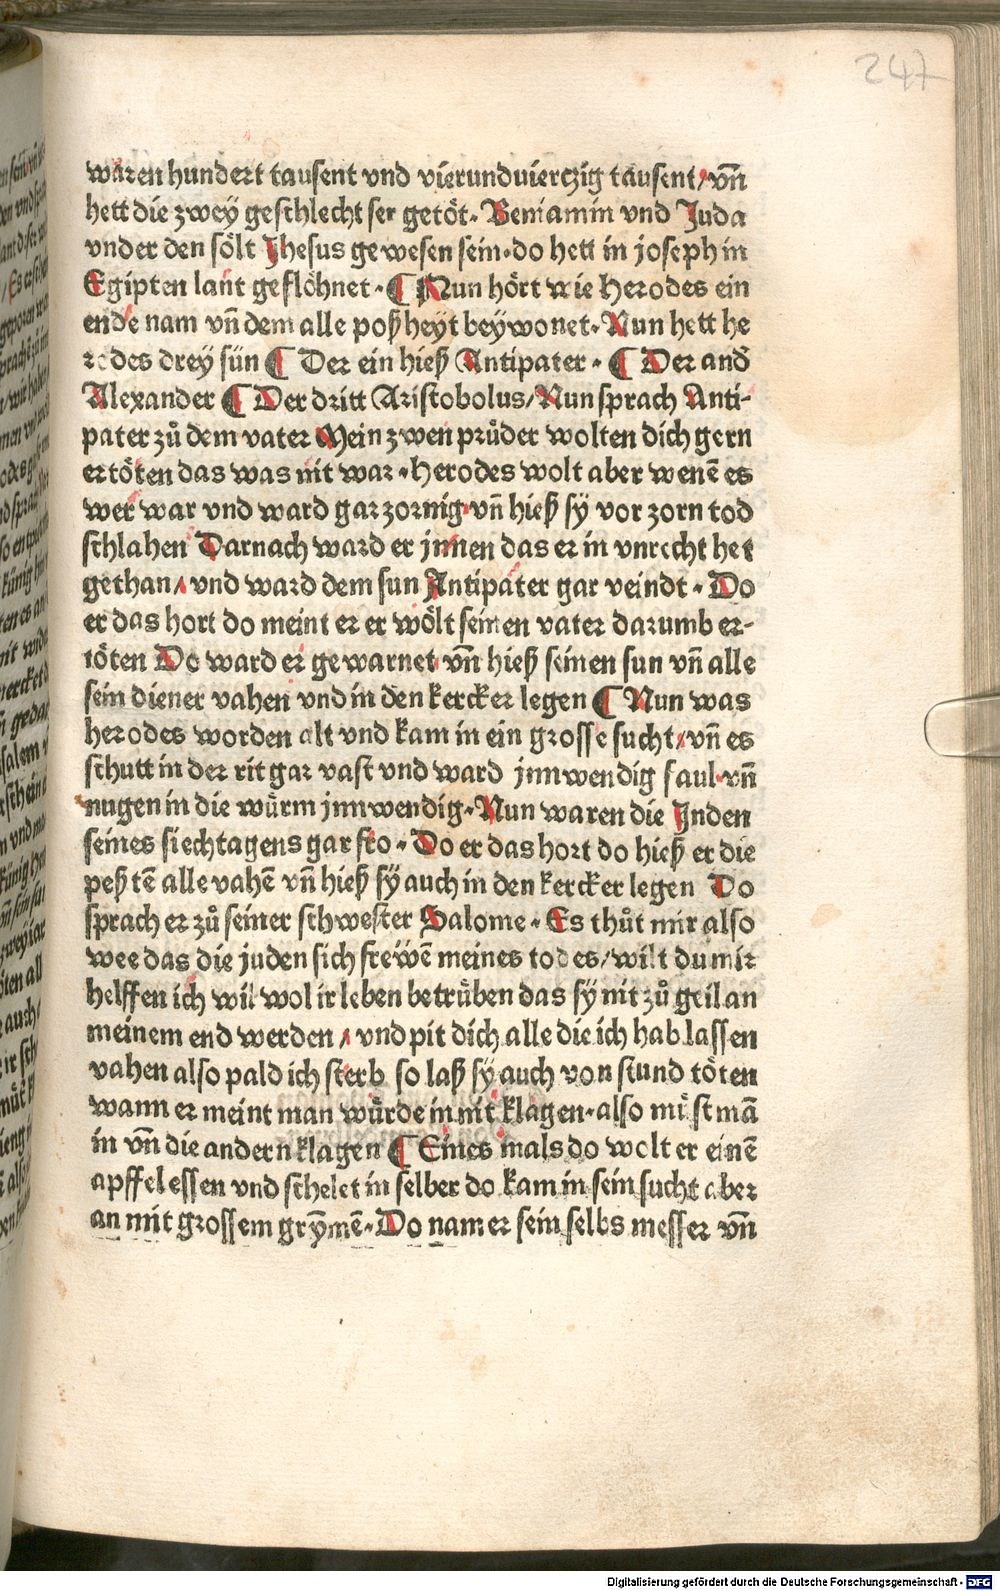 247
waren hundert tausent vnd vierundviertzig tausent / vñ
hett die zwey geschlecht ser getöt. Beniamin vnd Juda
vnder den sölt Jhesus gewesen sein. do hett in joseph in
Egipten lant geflöhnet. ¶ Nun hört wie Herodes ein
ende nam vñ dem alle poßheyt beywonet. Nun hett he
rodes drey sün ¶ Der ein hieß Antipater. ¶ Der and̄
Alexander ¶ Der dritt Aristobolus / Nun sprach Anti-
pater zů dem vater Mein zwen průder wolten dich gern
ertöten das was nit war. Herodes wolt aber wenē es
wer war vnd ward gar zornig. vñ hieß sy vor zorn tod
schlahen Darnach ward er jnnen das er in vnrecht het
gethan / vnd ward dem sun Antipater gar veindt. Do
er das hort do meint er er wölt seinen vater darumb er-
töten Do ward er gewarnet. vñ hieß seinen sun vñ alle
sein diener vahen vnd in den kercker legen ¶ Nun was
herodes worden alt vnd kam in ein grosse sucht / vñ es
schutt in der rit gar vast vnd ward jnnwendig faul. vñ
nugen in die würm jnnwendig. Nun waren die Juden
seines siechtagens gar fro. Do er das hort do hieß er die
peßtē alle vahē vñ hieß sy auch in den kercker legen Do
sprach er zů seiner schwester Salome. Es thůt mir also
wee das die juden sich frewē meines todes / wilt du mir
helffen ich wil wol ir leben betrüben das sy nit zů geil an
meinem end werden / vnd pit dich alle die ich hab lassen
vahen also pald ich sterb so laß sy auch von stund töten
wann er meint man würde in nit klagen. also müst mā
in vñ die andern klagen ¶ Eines mals do wolt er einē
apffel essen vnd schelet in selber do kam in sein sucht aber
an mit grossem grymē. Do nam er sein selbs messer vñ
Digitalisierung gefördert durch die Deutsche Forschungsgemeinschaft - DFG